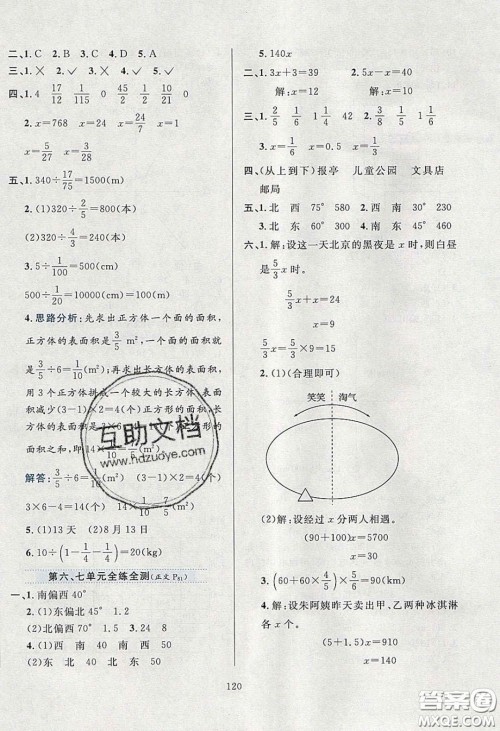 二、1. C 2. B 3. A 4. D 5. A
三、1. × 2. × 3. × 4. ✓ 5. ✓
四、1. 4 17/12 1/115 0 45/2 24/15 0
2. x=768 x=24/13 x=1
x=5/27 x=3/28
五、1. 340÷17/75=1500(m)
2. (1)320÷2/5=800(本)
(2)320÷4/5=400(本)
3. 5÷1/100=500(m)
500÷1/20=10000(m)
4. 思路分析:先求出正方体一个面的面积,
正方体的表面积是3/5 m²,一个面的面积
就是3/5÷6=1/10(m²);再求长方体的表面积,
用3个正方体拼成一个较大的长方体,表
面积减少(3-1)×2=4(个)正方形的面积,
即长方体的表面积是14个正方形的面
积之和,即14×1/10=7/5(m²)。
解答:3/5÷6=1/10(m²) (3-1)×2=4(个)
3×6-4=14(个) 14×1/10=7/5(m²)
5. (1)13天 (2)8月13日
6. 10÷(1-1/4-1/4)=20(kg)
第六、七单元全练全测(正文P81)
一、1. 南偏西40°
2. (1)东偏北45° 1.2
(2)北偏西70° 1.5 3. 24 8
4. (1)西 南 40 南 西 50
(2)东 北 40 北 东 50
5. 140x
二、1. 3x+3=39 2. 5x-x=40
解:x=12 解:x=10
三、1. 1/6 31/6 2. 3/4 11/6
3. x=1/6 x=9/10 x=3/4
四、(从上到下)报亭 儿童公园 文具店
邮局
五、1. 北 西 75° 580 2. 西 南 50° 230
3. 北 东 60° 300 4. 南 东 45° 460
六、1. 解:设这一天北京的黑夜是x时,则白昼
是5/3x时。
5/3x+x=24
x=9
5/3x=5/3×9=15
2. (1)(合理即可)
笑笑 淘气
(2)解:设经过x分两人相遇。
(90+100)x=5700
x=30
3. (60+60×4/5)×5/6=90(元)
4. 解:设朱阿姨昨天卖出甲、乙两种冰淇淋
各x个。
(5+1.5)x=910
x=140
120
互助文档
www.hdzuoye.com
答案圈
MXQE.COM